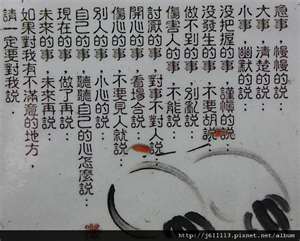 急事，慢慢的說…
大事，清楚的說…
小事，幽默的說…
沒把握的事，謹慎的說…
沒發生的事，不要胡說…
做不到的事，別亂說…
傷害人的事，不能說…
討厭的事，對事不對人說…
開心的事，看場合說…
傷心的事，不要見人就說…
別人的事，小心的說…
自己的事，聽聽自己的心怎麼說…
現在的事，做了再說…
未來的事，未來再說…
如果對我有不滿意的地方，
請一定要對我說…
http://j611113.pixnet.net/album